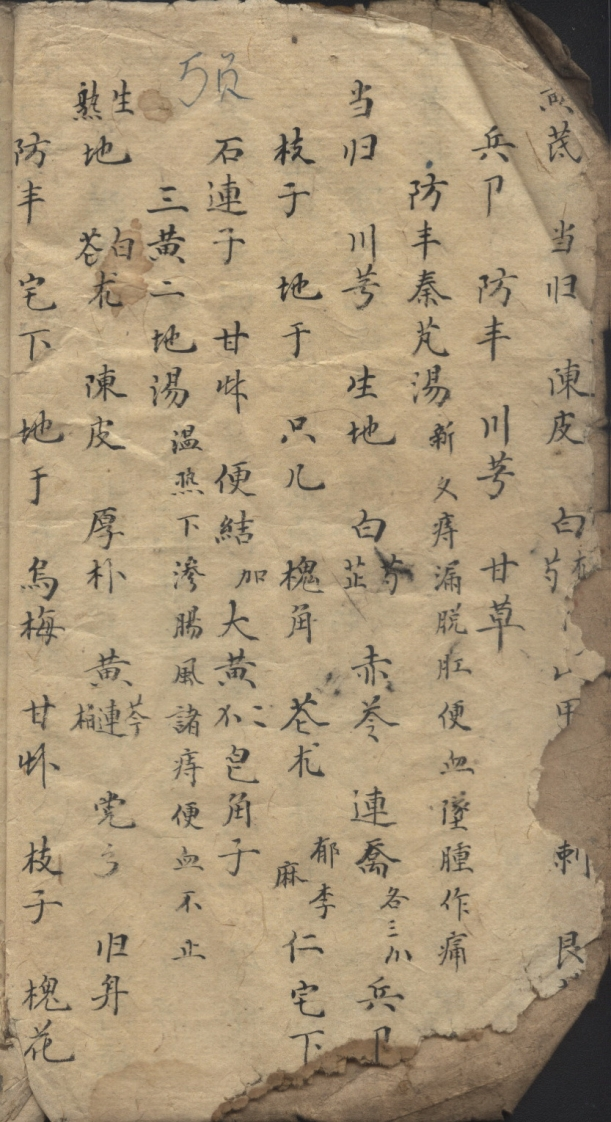 芪 当归 陳皮 白芍 甲 刺
兵卩 防丰 川芎 甘草
防丰秦艽湯 新久痔漏脱肛便血墜腫作痛
当归 川芎 生地 白芍芷 赤苓 連喬 各三 兵卩
枝子 地于 只几 槐角 苍朮 郁李麻仁 宅下
石連子 甘艸 便結加大黄 皂角子
三黄二地湯 温热下渗腸風諸痔便血不止
生熟地 白苍朮 陳皮 厚朴 黄芩連柏 归身
防丰 宅下 地于 烏梅 甘艸 枝子 槐花